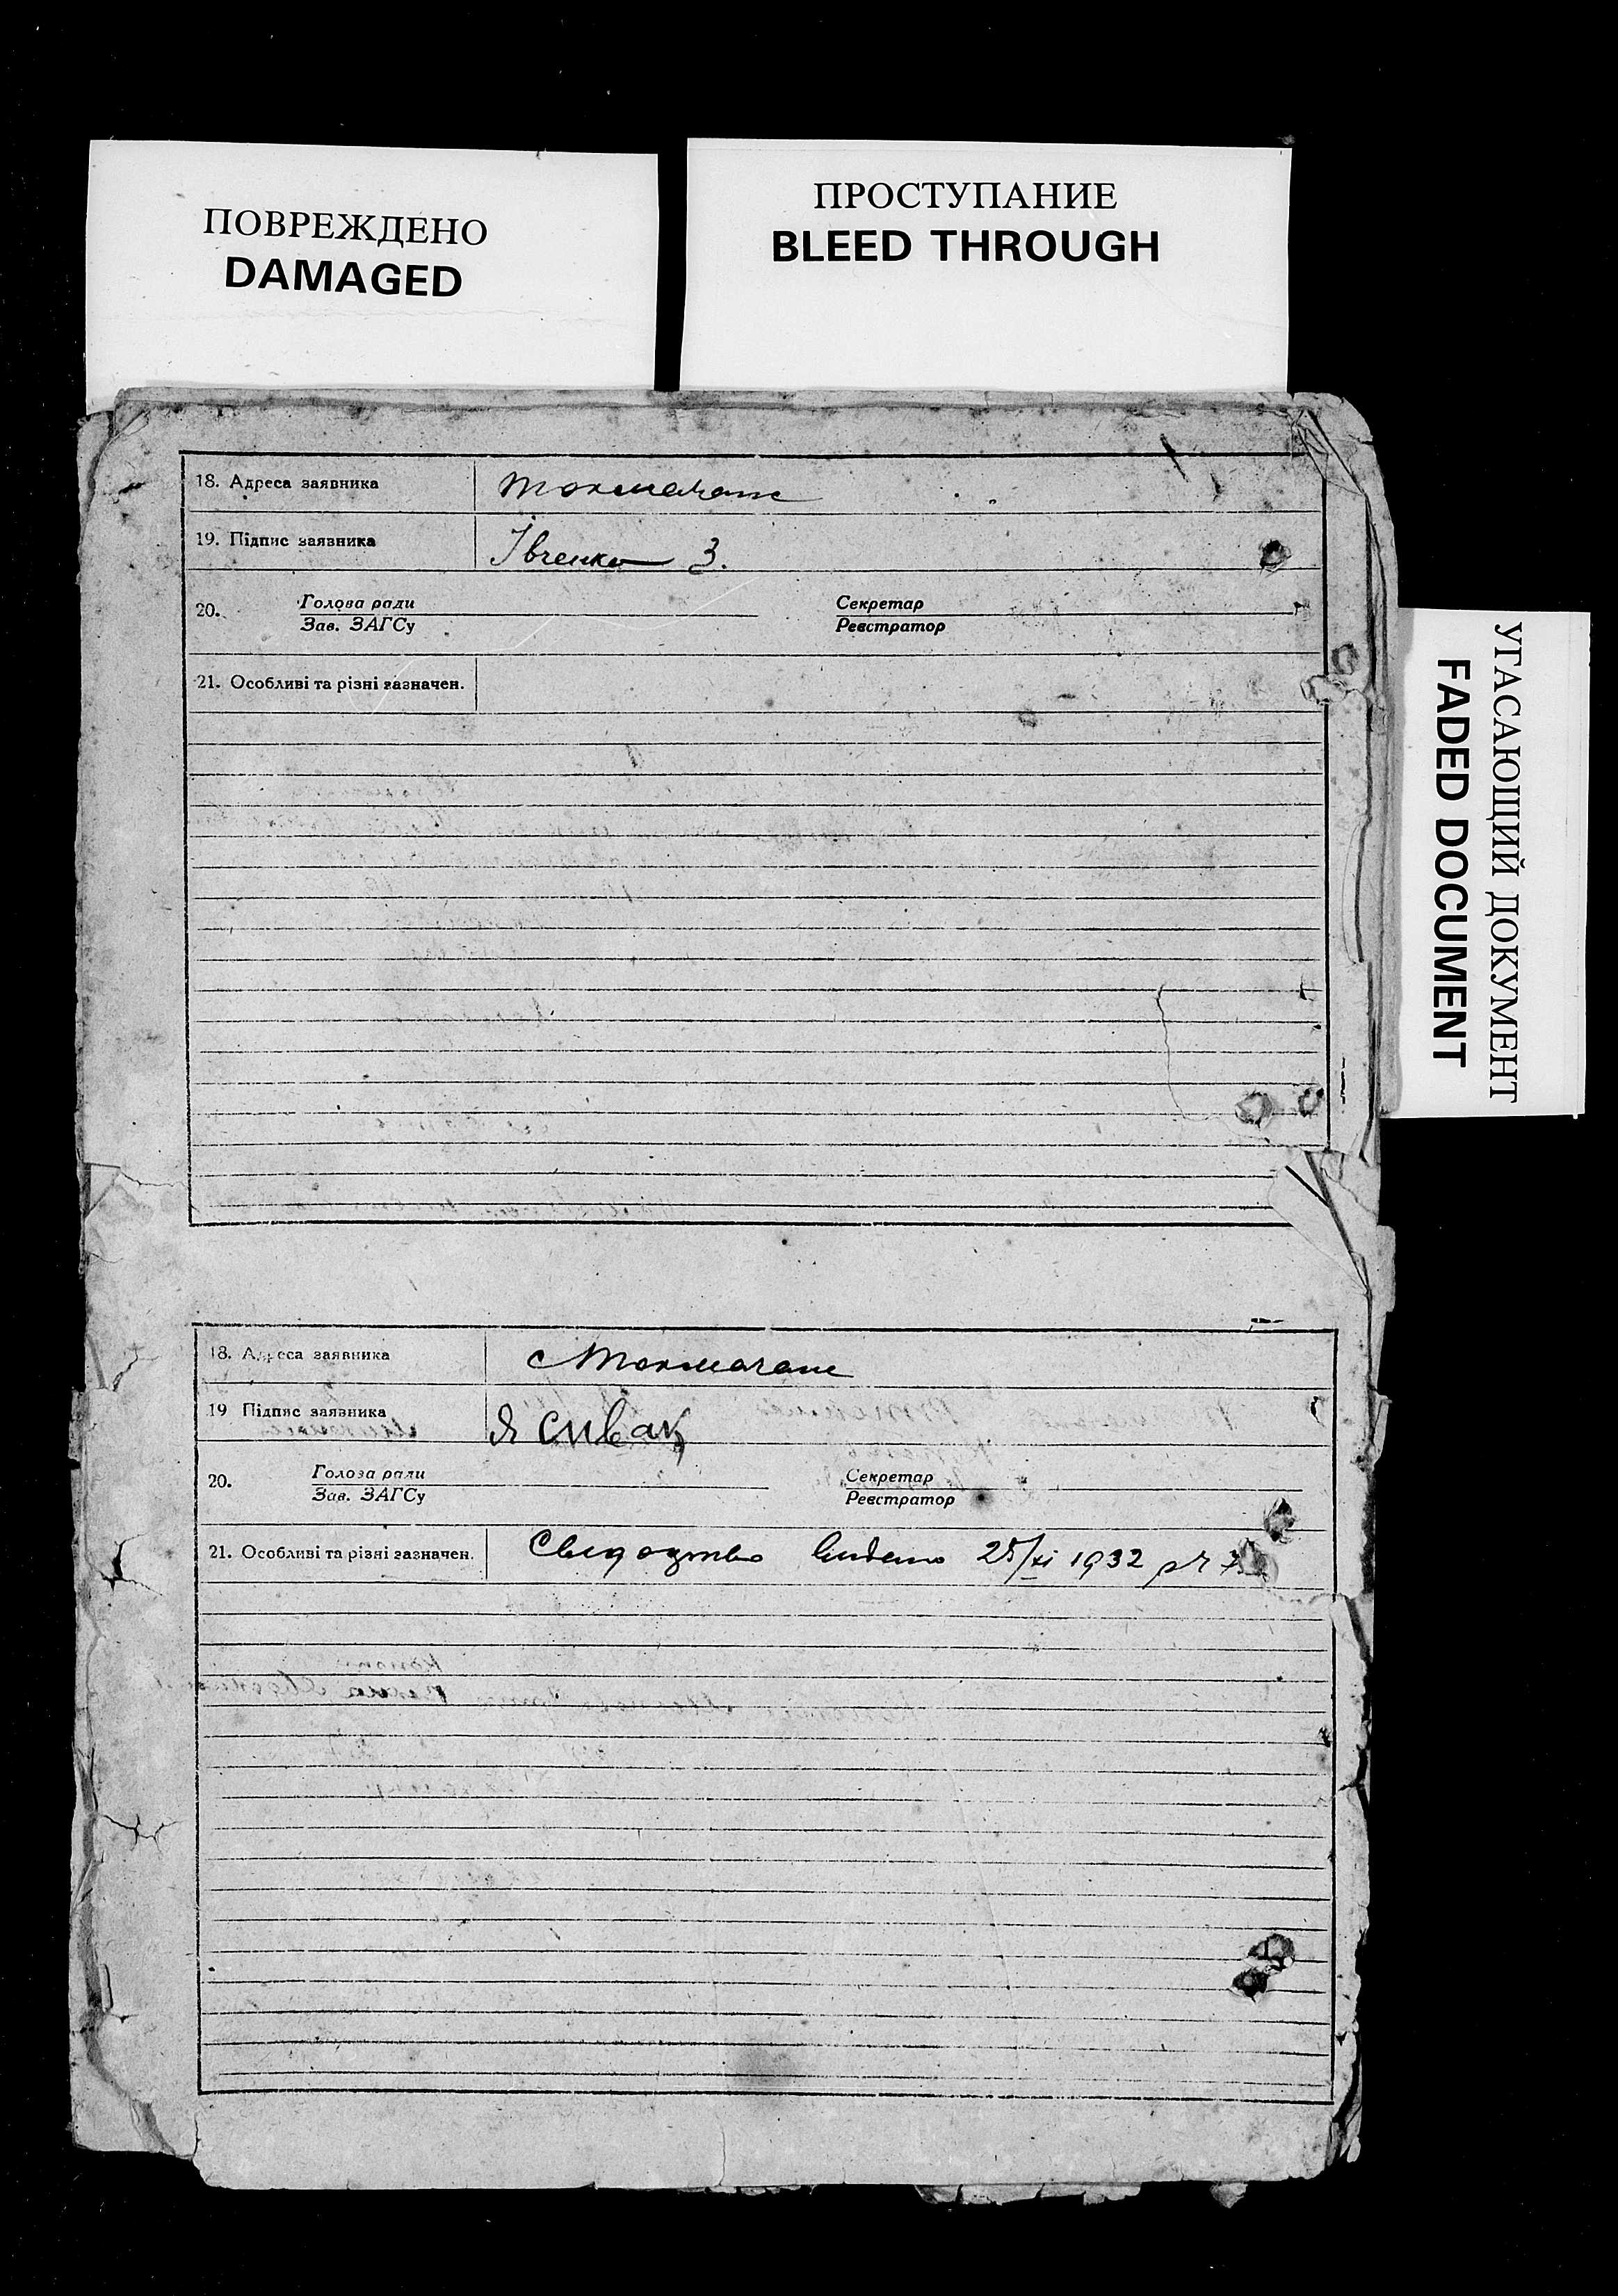 ПОВРЕЖДЕНО
DAMAGED
ПРОСТУПАНИЕ
BLEED THROUGH
УГАСАЮЩИЙ ДОКУМЕНТ
FADED DOCUMENT
18. Адреса заявника
19. Підпис заявника Івченко З.
20. Голова ради Секретар
Зав. ЗАГСу Реєстратор
21. Особливі та різні зазначен.
18. Адреса заявника
19 Підпис заявника Я Сивак
20. Голова ради Секретар
Зав. ЗАГСу Реєстратор
21. Особливі та різні зазначен. Свидоцтво видано 25/XI 1932